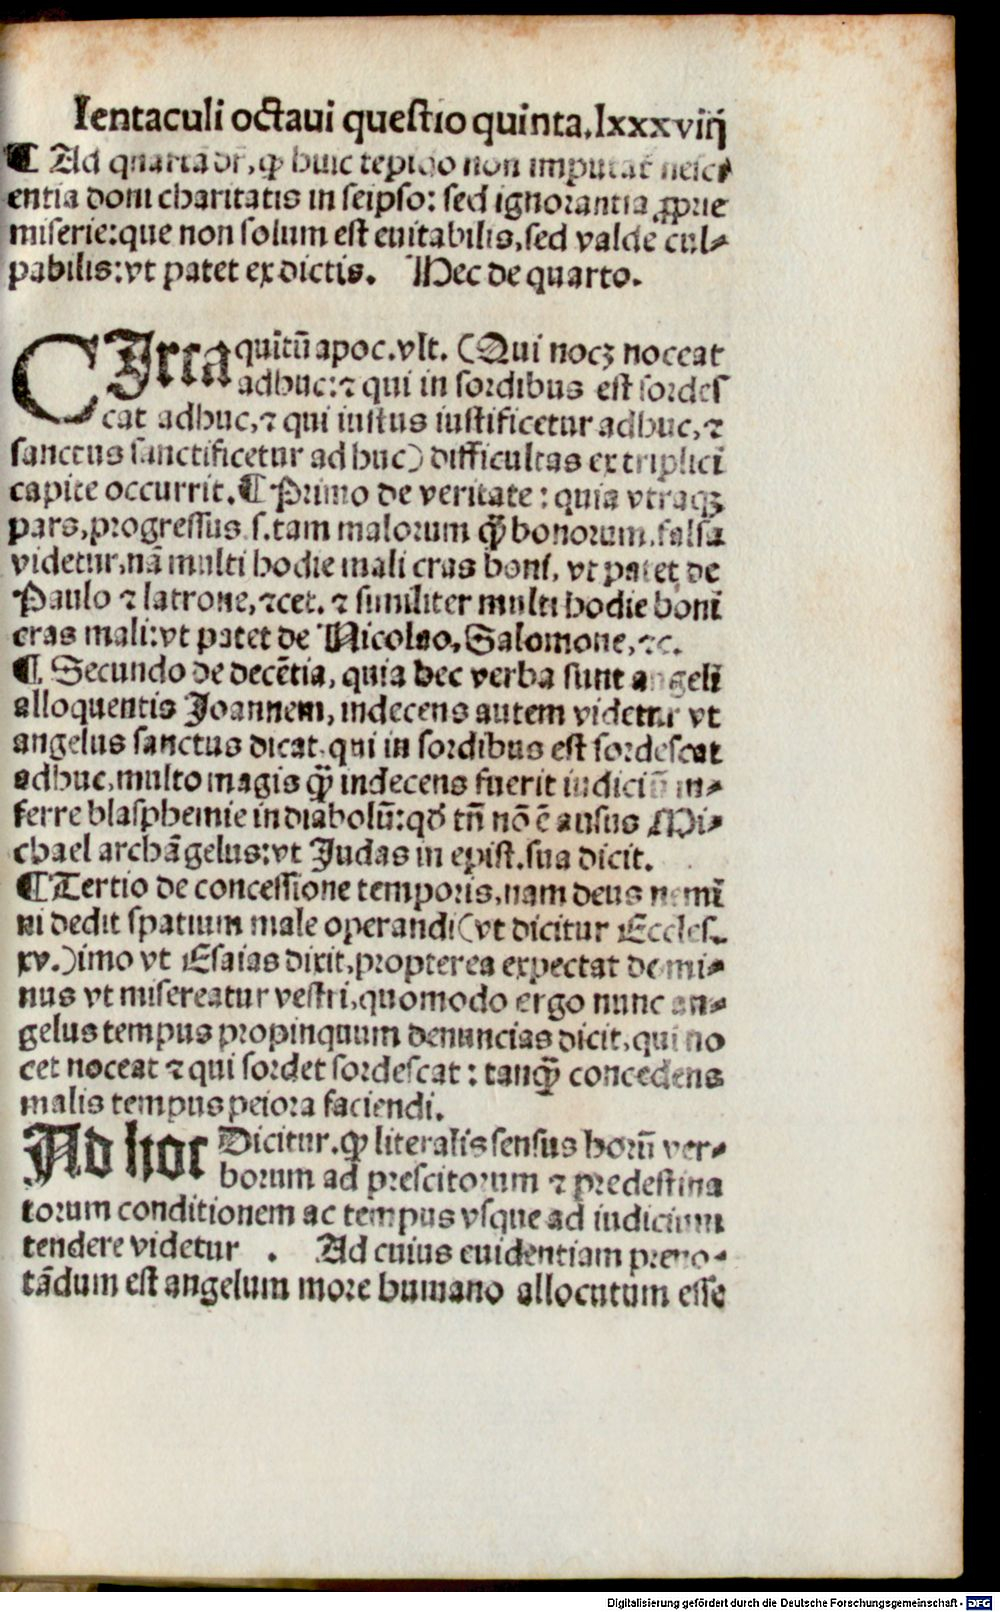 Ientaculi octaui questio quinta. lxxxviij
¶ Ad quartā dr̄, ꝙ huic tepido non imputat̄ nesci
entia doni charitatis in seipso: sed ignorantia ꝓprie
miserie: que non solum est euitabilis, sed valde cul⸗
pabilis: vt patet ex dictis. Hec de quarto.
CIrca quintū apoc. vlt. (Qui nocꝫ noceat
adhuc: ⁊ qui in sordibus est sordes
cat adhuc, ⁊ qui iustus iustificetur adhuc, ⁊
sanctus sanctificetur adhuc) difficultas ex triplici
capite occurrit. ¶ Primo de veritate: quia vtraqꝫ
pars, progressus .s. tam malorum ꝙ̄ bonorum, falsa
videtur, nā multi hodie mali cras boni, vt patet de
Paulo ⁊ latrone, ⁊cet. ⁊ similiter multi hodie boni
cras mali: vt patet de Nicolao, Salomone, ⁊c.
¶ Secundo de decētia, quia hec verba sunt angeli
alloquentis Joannem, indecens autem videtur vt
angelus sanctus dicat. qui in sordibus est sordescat
adhuc, multo magis ꝙ̄ indecens fuerit iudiciū in⸗
ferre blasphemie in diabolū: qd̄ tn̄ nō ē ausus Mi⸗
chael archāgelus: vt Judas in epist. sua dicit.
¶ Tertio de concessione temporis, nam deus nemi
ni dedit spatium male operandi (vt dicitur Eccles.
xv.) imo vt Esaias dixit, propterea expectat domi⸗
nus vt misereatur vestri, quomodo ergo nunc an⸗
gelus tempus propinquum denuncias dicit, qui no
cet noceat ⁊ qui sordet sordescat: tanꝙ̄ concedens
malis tempus peiora faciendi.
Ad hoc Dicitur, ꝙ literalis sensus horū ver⸗
borum ad prescitorum ⁊ predestina
torum conditionem ac tempus vsque ad iudicium
tendere videtur . Ad cuius euidentiam preno⸗
tādum est angelum more humano allocutum esse
Digitalisierung gefördert durch die Deutsche Forschungsgemeinschaft - DFG